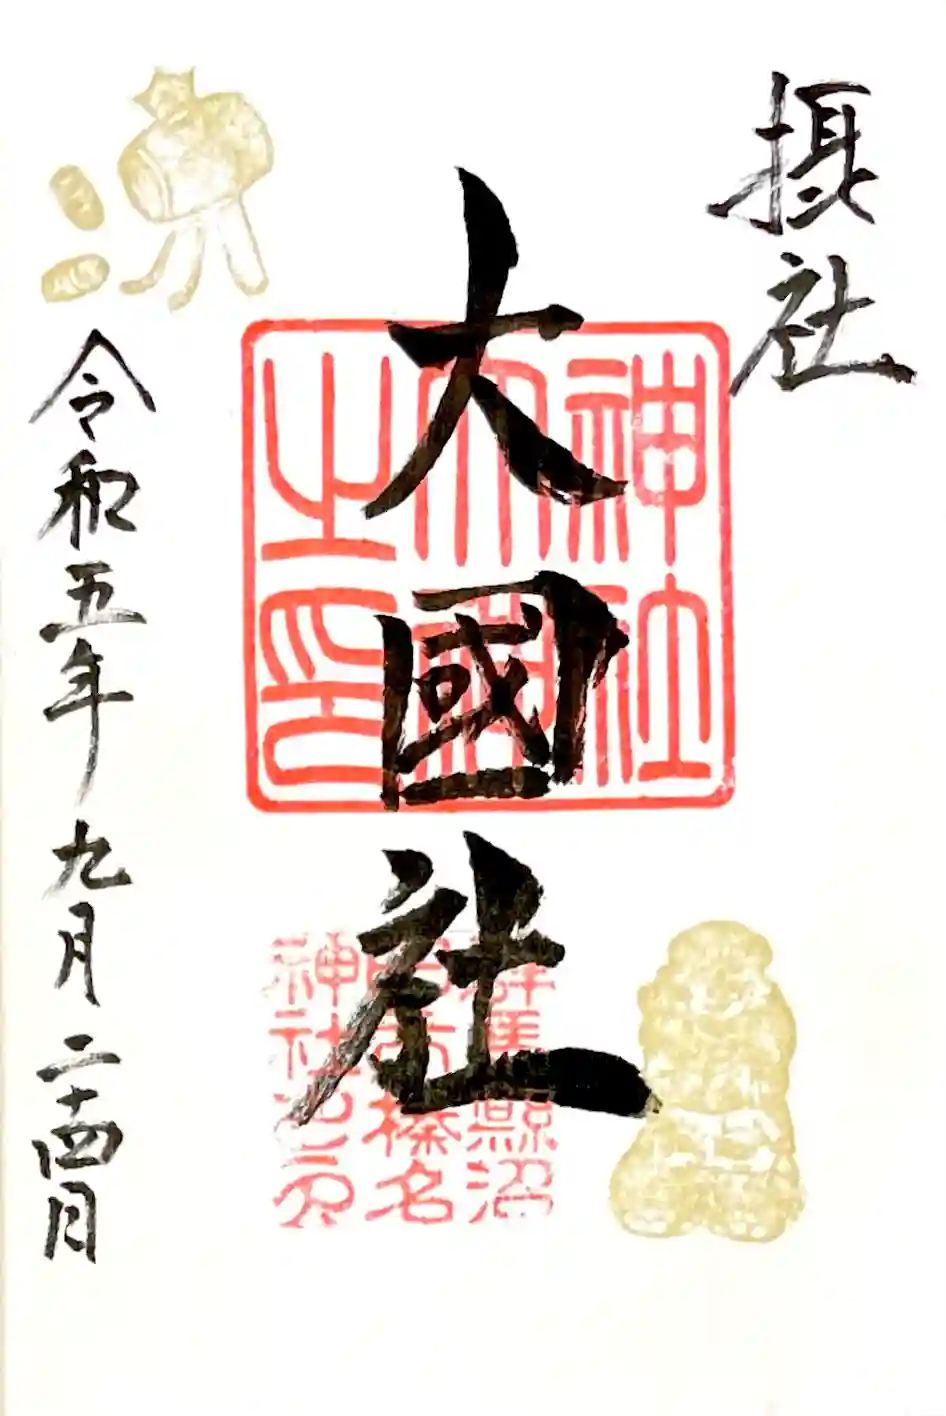 摂社
大國社
神社
之印
群馬縣沼
田市榛名
神社之印
令和五年九月二十四日